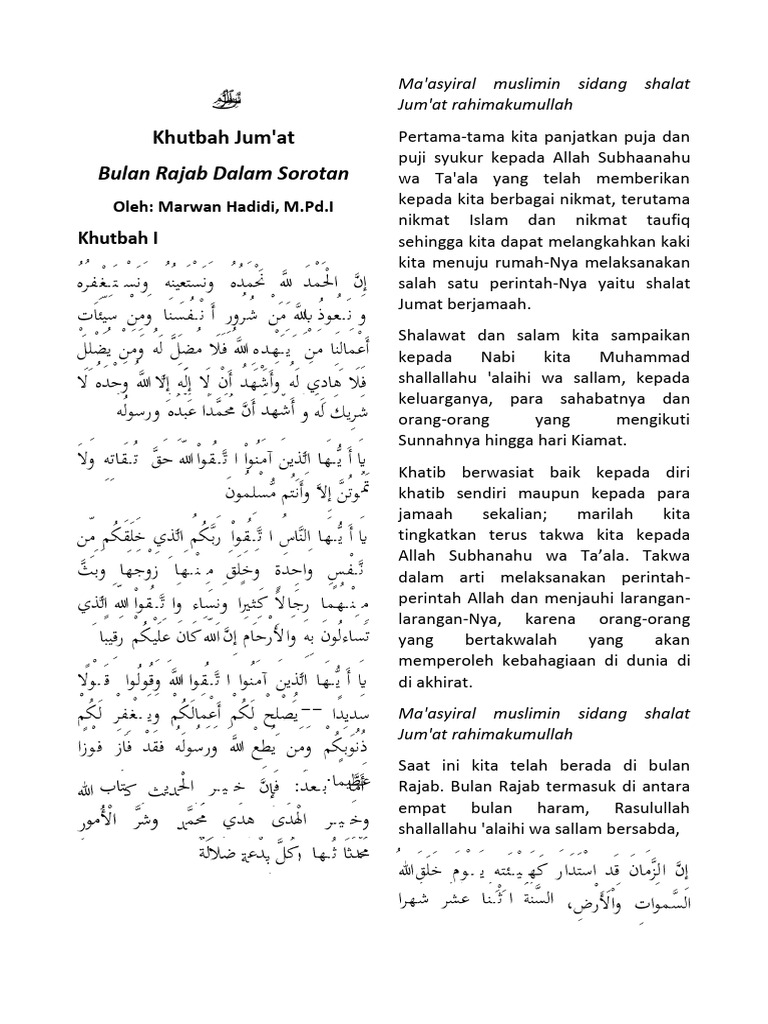 Khutbah Jum'at
Bulan Rajab Dalam Sorotan
Oleh: Marwan Hadidi, M.Pd.I
Khutbah I
إِنَّ الْحَمْدَ لِلَّهِ نَحْمَدُهُ وَنَسْتَعِينُهُ وَنَسْتَغْفِرُهُ
وَنَعُوذُ بِاللَّهِ مِنْ شُرُورِ أَنْفُسِنَا وَمِنْ سَيِّئَاتِ
أَعْمَالِنَا مَنْ يَهْدِهِ اللَّهُ فَلَا مُضِلَّ لَهُ وَمَنْ يُضْلِلْ
فَلَا هَادِيَ لَهُ وَأَشْهَدُ أَنْ لَا إِلَهَ إِلَّا اللَّهُ وَحْدَهُ لَا
شَرِيكَ لَهُ وَأَشْهَدُ أَنَّ مُحَمَّدًا عَبْدُهُ وَرَسُولُهُ
يَا أَيُّهَا الَّذِينَ آمَنُواْ اتَّقُواْ اللّهَ حَقَّ تُقَاتِهِ وَلاَ
تَمُوتُنَّ إِلاَّ وَأَنتُم مُّسْلِمُونَ
يَا أَيُّهَا النَّاسُ اتَّقُواْ رَبَّكُمُ الَّذِي خَلَقَكُم مِّن
نَّفْسٍ وَاحِدَةٍ وَخَلَقَ مِنْهَا زَوْجَهَا وَبَثَّ
مِنْهُمَا رِجَالاً كَثِيرًا وَنِسَاء وَاتَّقُواْ اللّهَ الَّذِي
تَسَاءلُونَ بِهِ وَالأَرْحَامَ إِنَّ اللّهَ كَانَ عَلَيْكُمْ رَقِيبًا
يَا أَيُّهَا الَّذِينَ آمَنُوا اتَّقُوا اللَّهَ وَقُولُوا قَوْلًا
سَدِيدًا -- يُصْلِحْ لَكُمْ أَعْمَالَكُمْ وَيَغْفِرْ لَكُمْ
ذُنُوبَكُمْ وَمَن يُطِعْ اللَّهَ وَرَسُولَهُ فَقَدْ فَازَ فَوْزًا
عَظِيمًا. بَعْدُ: فَإِنَّ خَيْرَ الْحَدِيثِ كِتَابُ اللَّهِ
وَخَيْرَ الْهَدْيِ هَدْيُ مُحَمَّدٍ وَشَرَّ الْأُمُورِ
مُحْدَثَاتُهَا وَكُلَّ بِدْعَةٍ ضَلَالَةٌ
Ma'asyiral muslimin sidang shalat
Jum'at rahimakumullah
Pertama-tama kita panjatkan puja dan
puji syukur kepada Allah Subhaanahu
wa Ta'ala yang telah memberikan
kepada kita berbagai nikmat, terutama
nikmat Islam dan nikmat taufiq
sehingga kita dapat melangkahkan kaki
kita menuju rumah-Nya melaksanakan
salah satu perintah-Nya yaitu shalat
Jumat berjamaah.
Shalawat dan salam kita sampaikan
kepada Nabi kita Muhammad
shallallahu 'alaihi wa sallam, kepada
keluarganya, para sahabatnya dan
orang-orang yang mengikuti
Sunnahnya hingga hari Kiamat.
Khatib berwasiat baik kepada diri
khatib sendiri maupun kepada para
jamaah sekalian; marilah kita
tingkatkan terus takwa kita kepada
Allah Subhanahu wa Ta’ala. Takwa
dalam arti melaksanakan perintah-
perintah Allah dan menjauhi larangan-
larangan-Nya, karena orang-orang
yang bertakwalah yang akan
memperoleh kebahagiaan di dunia di
di akhirat.
Ma'asyiral muslimin sidang shalat
Jum'at rahimakumullah
Saat ini kita telah berada di bulan
Rajab. Bulan Rajab termasuk di antara
empat bulan haram, Rasulullah
shallallahu 'alaihi wa sallam bersabda,
إِنَّ الزَّمَانَ قَدِ اسْتَدَارَ كَهَيْئَتِهِ يَوْمَ خَلَقَ اللَّهُ
السَّمَوَاتِ وَالْأَرْضَ، السَّنَةُ اثْنَا عَشَرَ شَهْرًا